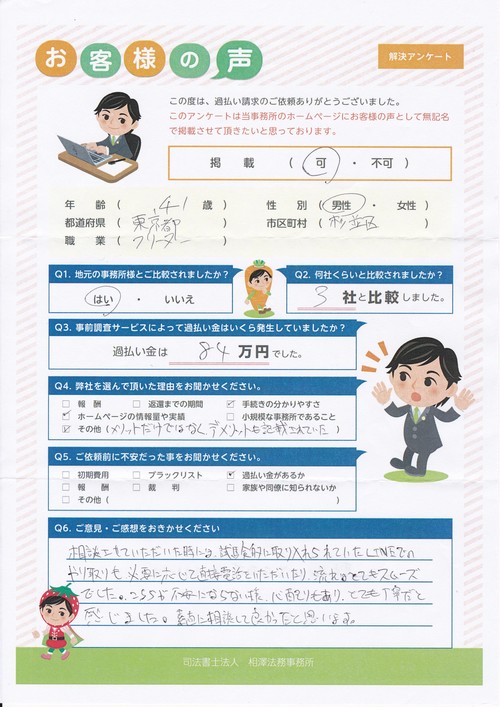 お客様の声
解決アンケート
この度は、過払い請求のご依頼ありがとうございました。
このアンケートは当事務所のホームページにお客様の声として無記名
で掲載させて頂きたいと思っております。
掲 載 ( 可 ・ 不可 )
年 齢 ( 41 歳 ) 性 別 ( 男性 ・ 女性 )
都道府県 ( 東京都 ) 市区町村 ( 杉並区 )
職 業 ( フリーター )
Q1. 地元の事務所様とご比較されましたか？
はい ・ いいえ
Q2. 何社くらいと比較されましたか？
3 社と比較しました。
Q3. 事前調査サービスによって過払い金はいくら発生していましたか？
過払い金は 84 万円でした。
Q4. 弊社を選んで頂いた理由をお聞かせください。
□ 報 酬 □ 返還までの期間 ☑ 手続きの分かりやすさ
☑ ホームページの情報量や実績 □ 小規模な事務所であること
☑ その他 (メリットだけではなく、デメリットも記載されていた)
Q5. ご依頼前に不安だった事をお聞かせください。
□ 初期費用 □ ブラックリスト ☑ 過払い金があるか
□ 報 酬 □ 裁 判 □ 家族や同僚に知られないか
□ その他 ( )
Q6. ご意見・ご感想をおきかせください
相談させていただいた時には、試験的に取り入れられていたLINEでの
やり取りも必要に応じて直接電話をいただいたり、流れもとてもスムーズ
でした。こちらが不安にならない様、心配りもあり、とても丁寧だと
感じました。 相談して良かったと思います。
司法書士法人 相澤法務事務所